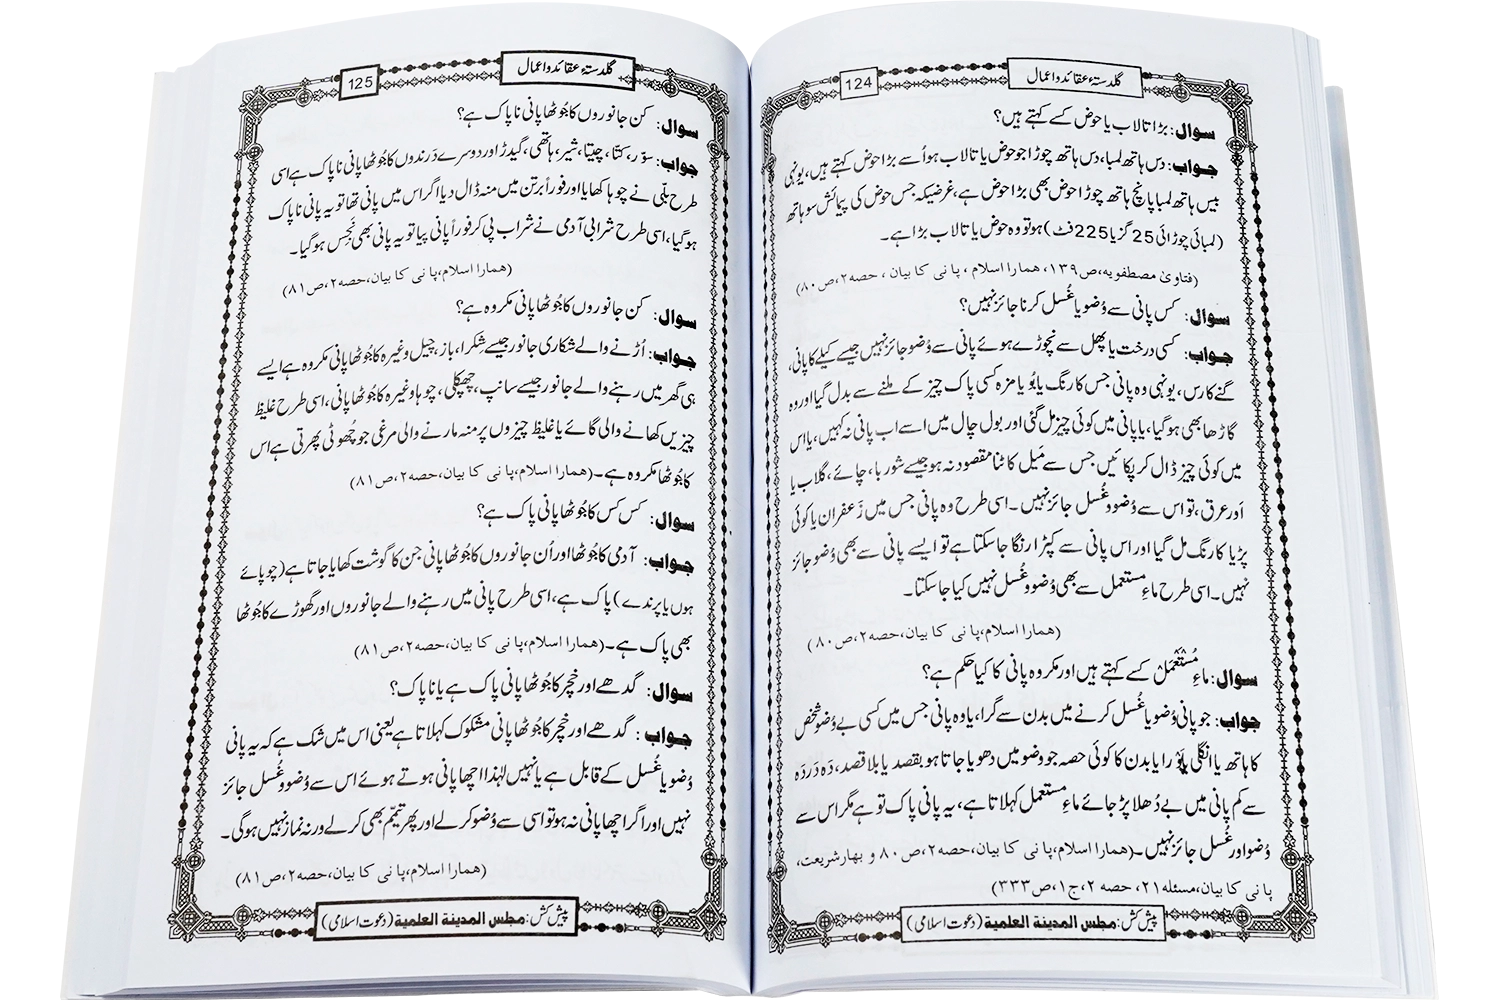 گلدستۂ عقائد و اعمال
124
سوال: بڑا تالاب یا حوض کسے کہتے ہیں؟
جواب: دس ہاتھ لمبا، دس ہاتھ چوڑا جو حوض یا تالاب ہو اُسے بڑا حوض کہتے ہیں، یونہی
بیس ہاتھ لمبا پانچ ہاتھ چوڑا حوض بھی بڑا حوض ہے، غرضیکہ جس حوض کی پیمائش سو ہاتھ
(لمبائی چوڑائی 25 گز یا 225 فٹ) ہو تو وہ حوض یا تالاب بڑا ہے۔
(فتاویٰ مصطفویہ، ص ۱۳۹، ہمارا اسلام، پانی کا بیان، حصہ ۲، ص ۸۰)
سوال: کس پانی سے وُضو یا غُسل کرنا جائز نہیں؟
جواب: کسی درخت یا پھل سے نچوڑے ہوئے پانی سے وُضو جائز نہیں جیسے کیلے کا پانی،
گنے کا رس، یونہی وہ پانی جس کا رنگ یا بُو یا مزہ کسی پاک چیز کے ملنے سے بدل گیا اور وہ
گاڑھا بھی ہو گیا، یا پانی میں کوئی چیز مل گئی اور بول چال میں اسے اب پانی نہ کہیں، یا اس
میں کوئی چیز ڈال کر پکائیں جس سے مَیل کاٹنا مقصود نہ ہو جیسے شوربا، چائے، گلاب یا
اور عرق، تو اس سے وُضو و غُسل جائز نہیں۔ اسی طرح وہ پانی جس میں زَعفران یا کوئی
پڑیا کا رنگ مل گیا اور اس پانی سے کپڑا رنگا جا سکتا ہے تو ایسے پانی سے بھی وُضو جائز
نہیں۔ اسی طرح ماءِ مستعمل سے بھی وُضو و غُسل نہیں کیا جا سکتا۔
(ہمارا اسلام، پانی کا بیان، حصہ ۲، ص ۸۰)
سوال: ماءِ مُسْتَعْمَل کسے کہتے ہیں اور مکروہ پانی کا کیا حکم ہے؟
جواب: جو پانی وُضو یا غُسل کرنے میں بدن سے گرا، یا وہ پانی جس میں کسی بے وُضو شخص
کا ہاتھ یا انگلی یا پَورا یا بدن کا کوئی حصہ جو وضو میں دھویا جاتا ہو بقصد یا بلا قصد، دَہ دَر دَہ
سے کم پانی میں بے دُھلا پڑ جائے ماءِ مستعمل کہلاتا ہے، یہ پانی پاک تو ہے مگر اس سے
وُضو اور غُسل جائز نہیں۔ (ہمارا اسلام، پانی کا بیان، حصہ ۲، ص ۸۰ و بہار شریعت،
پانی کا بیان، مسئلہ ۲۱، حصہ ۲، ج ۱، ص ۳۳۳)
پیش کش: مجلس المدینة العلمیة (دعوت اسلامی)
گلدستۂ عقائد و اعمال
125
سوال: کن جانوروں کا جُوٹھا پانی ناپاک ہے؟
جواب: سوّر، کتّا، چیتا، شیر، ہاتھی، گیدڑ اور دوسرے دَرندوں کا جُوٹھا پانی ناپاک ہے اسی
طرح بلّی نے چوہا کھایا اور فوراً برتن میں منہ ڈال دیا اگر اس میں پانی تھا تو یہ پانی ناپاک
ہو گیا، اسی طرح شرابی آدمی نے شراب پی کر فوراً پانی پیا تو یہ پانی بھی نَجِس ہو گیا۔
(ہمارا اسلام، پانی کا بیان، حصہ ۲، ص ۸۱)
سوال: کن جانوروں کا جُوٹھا پانی مکروہ ہے؟
جواب: اُڑنے والے شکاری جانور جیسے شِکرا، باز، چیل وغیرہ کا جُوٹھا پانی مکروہ ہے ایسے
ہی گھر میں رہنے والے جانور جیسے سانپ، چھپکلی، چوہا وغیرہ کا جُوٹھا پانی، اسی طرح غلیظ
چیزیں کھانے والی گائے یا غلیظ چیزوں پر منہ مارنے والی مرغی جو چُھوٹی پھرتی ہے اس
کا جُوٹھا مکروہ ہے۔ (ہمارا اسلام، پانی کا بیان، حصہ ۲، ص ۸۱)
سوال: کس کس کا جُوٹھا پانی پاک ہے؟
جواب: آدمی کا جُوٹھا اور اُن جانوروں کا جُوٹھا پانی جن کا گوشت کھایا جاتا ہے (چوپائے
ہوں یا پرندے) پاک ہے، اسی طرح پانی میں رہنے والے جانوروں اور گھوڑے کا جُوٹھا
بھی پاک ہے۔ (ہمارا اسلام، پانی کا بیان، حصہ ۲، ص ۸۱)
سوال: گدھے اور خچر کا جُوٹھا پانی پاک ہے یا ناپاک؟
جواب: گدھے اور خچر کا جُوٹھا پانی مشکوک کہلاتا ہے یعنی اس میں شک ہے کہ یہ پانی
وُضو یا غُسل کے قابل ہے یا نہیں لہٰذا اچھا پانی ہوتے ہوئے اس سے وُضو و غُسل جائز
نہیں اور اگر اچھا پانی نہ ہو تو اسی سے وُضو کر لے اور پھر تیمّم بھی کر لے ورنہ نماز نہیں ہوگی۔
(ہمارا اسلام، پانی کا بیان، حصہ ۲، ص ۸۱)
پیش کش: مجلس المدینة العلمیة (دعوت اسلامی)